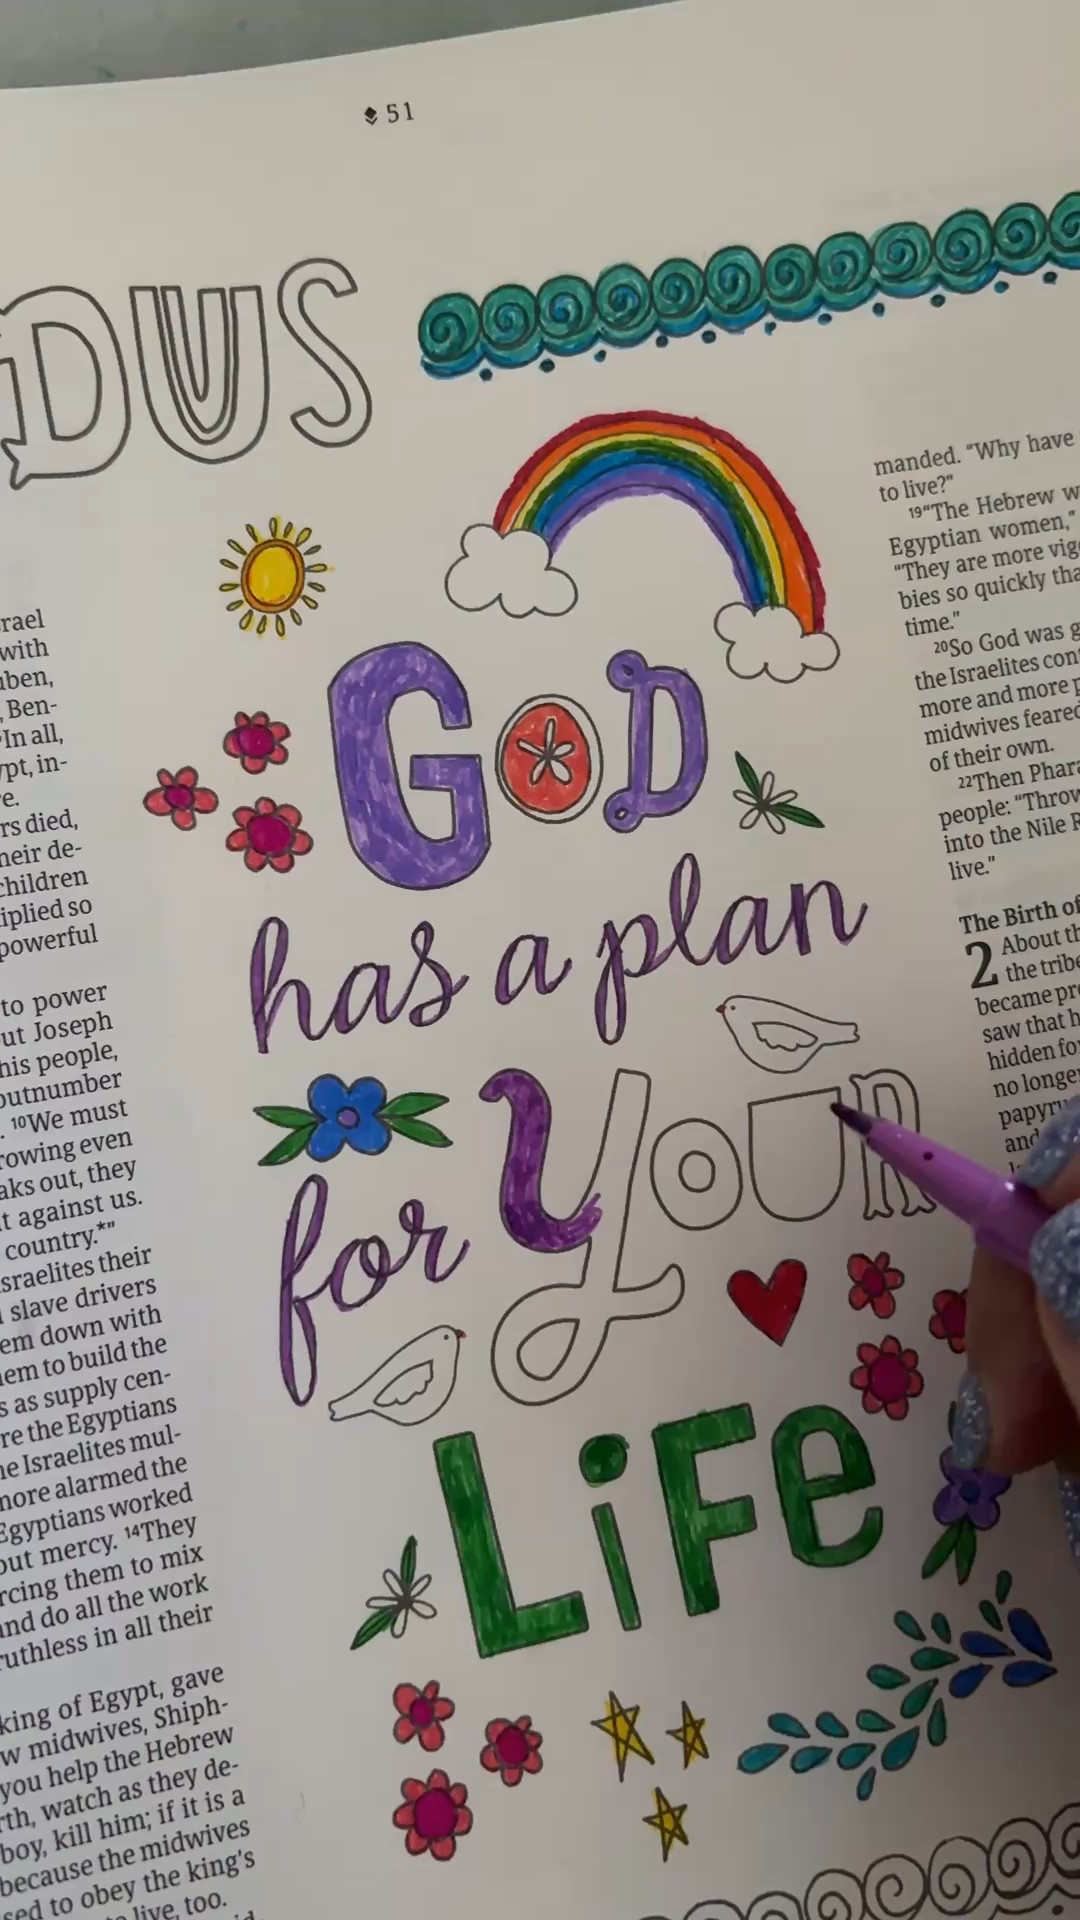 51
DUS
GOD
has a plan
for YOUR
LiFe
srael
with
uben,
, Ben-
In all,
ypt, in-
re.
rs died,
heir de-
children
tiplied so
powerful
to power
out Joseph
his people,
outnumber
. 10We must
rowing even
aks out, they
t against us.
country.*"
sraelites their
slave drivers
em down with
hem to build the
s as supply cen-
re the Egyptians
he Israelites mul-
more alarmed the
Egyptians worked
out mercy. 14They
rcing them to mix
and do all the work
ruthless in all their
king of Egypt, gave
w midwives, Shiph-
you help the Hebrew
rth, watch as they de-
boy, kill him; if it is a
because the midwives
sed to obey the king's
live, too.
manded. "Why have
to live?"
19"The Hebrew w
Egyptian women,"
"They are more vig
bies so quickly tha
time."
20So God was g
the Israelites con
more and more p
midwives feared
of their own.
22Then Phara
people: "Throw
into the Nile R
live."
The Birth of
2 About th
the tribe
became pre
saw that h
hidden fo
no longe
papyru
and